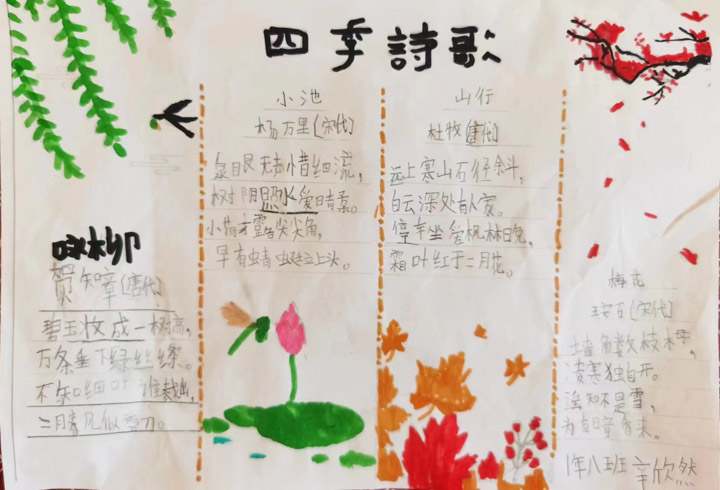 四季詩歌
咏柳
贺知章(唐代)
碧玉妆成一树高,
万条垂下绿丝绦。
不知细叶谁裁出,
二月春风似剪刀。
小池
杨万里(宋代)
泉眼无声惜细流,
树阴照水爱晴柔。
小荷才露尖尖角,
早有蜻蜓立上头。
山行
杜牧(唐代)
远上寒山石径斜,
白云深处有人家。
停车坐爱枫林晚,
霜叶红于二月花。
梅花
王安石(宋代)
墙角数枝梅,
凌寒独自开。
遥知不是雪,
为有暗香来。
1年八班 辛欣然